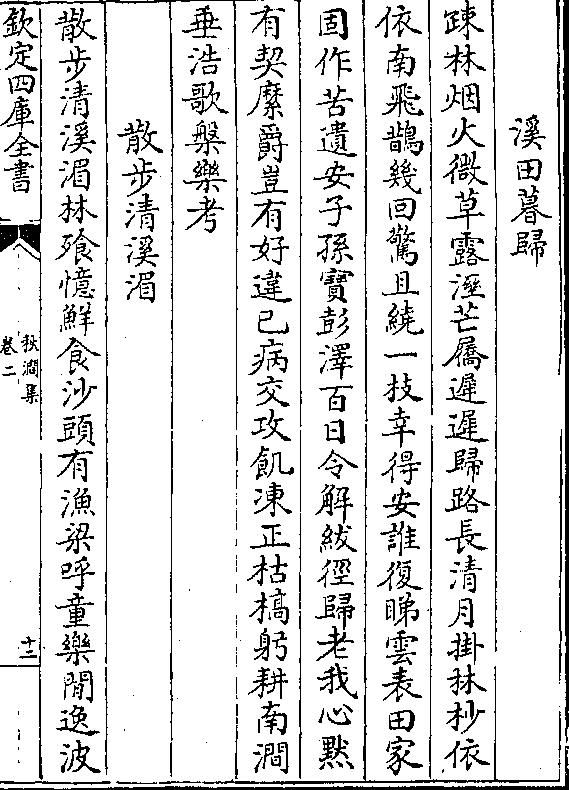 溪田暮歸
踈林烟火微草露溼芒屩遲遲歸路長清月掛林杪依
依南飛鵲幾回驚且繞一枝幸得安誰復睇雲表田家
固作苦遺安子孫寶彭澤百日令解紱徑歸老我心黙
有契縻爵豈有好違已病交攻飢凍正枯槁躬耕南澗
垂浩歌槃樂考
散步清溪湄
散步清溪湄林飱憶鮮食沙頭有漁梁呼童樂閒逸波
欽定四庫全書
秋澗集
卷二
十二